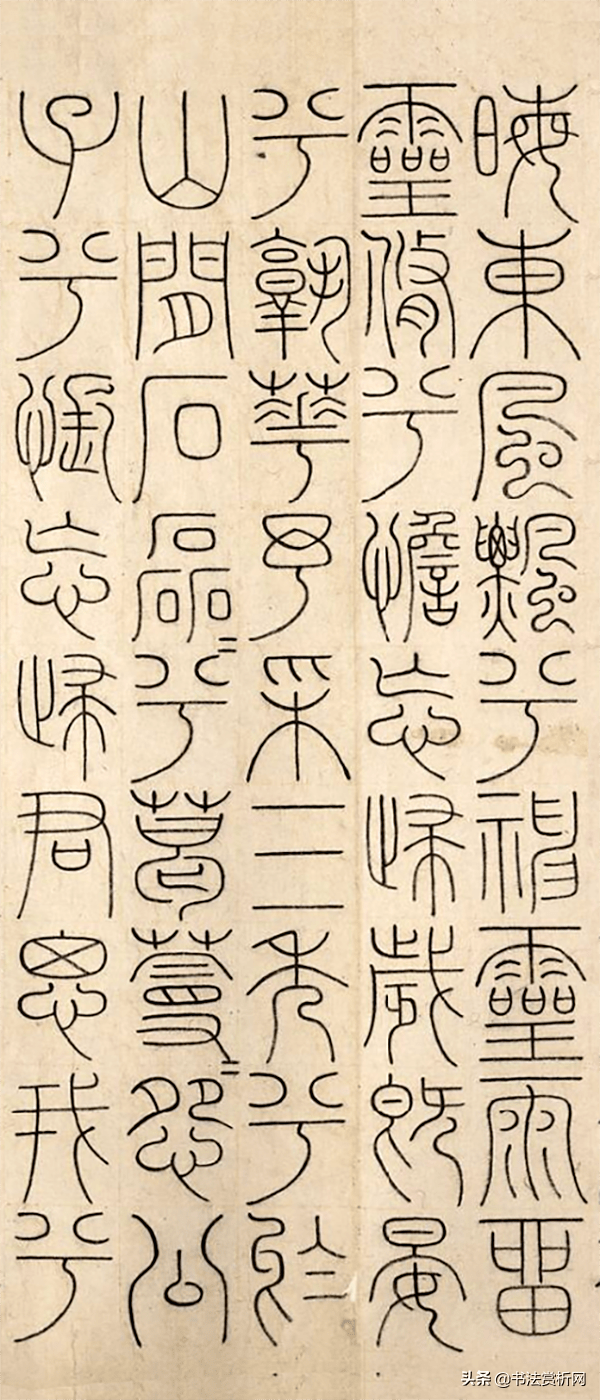 晦東風飄兮神靈雨留
靈脩兮憺忘歸歲既晏
兮孰華予采三秀兮於
山間石磊=兮葛蔓=怨公
子兮悵忘歸君思我兮
头条 @书法赏析网